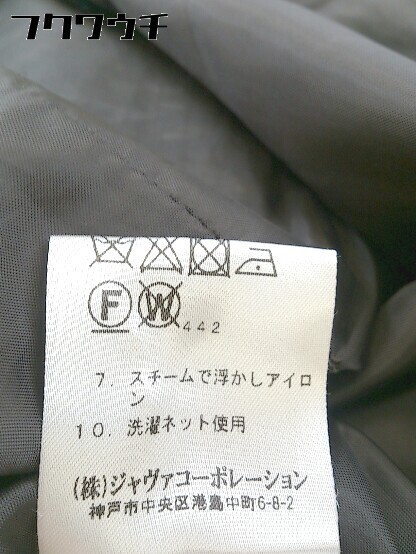 フクワウチ
F W 442
7. スチームで浮かしアイロ
ン
10. 洗濯ネット使用
(株)ジャヴァコーポレーション
神戸市中央区港島中町6-8-2